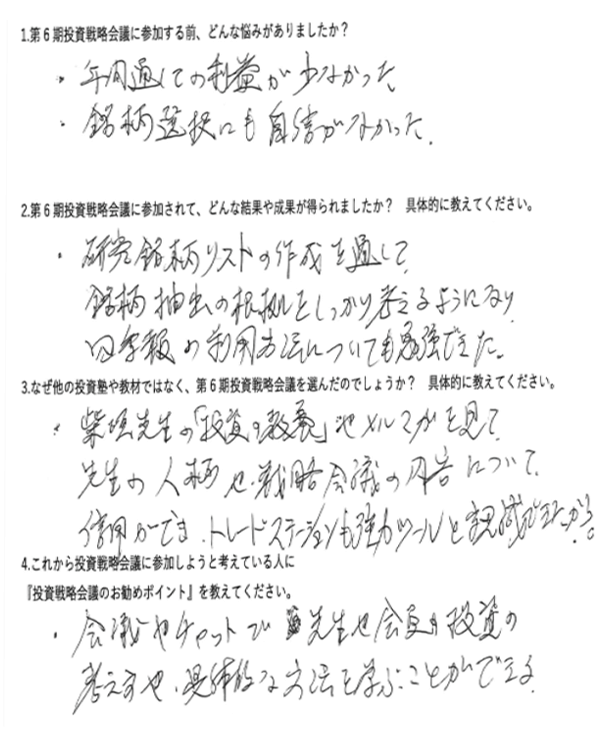 1.第6期投資戦略会議に参加する前、どんな悩みがありましたか？
・年間通しての利益が少なかった。
・銘柄選択にも自信がなかった。
2.第6期投資戦略会議に参加されて、どんな結果や成果が得られましたか？　具体的に教えてください。
・研究銘柄リストの作成を通して、
銘柄抽出の根拠をしっかり考えるようになり
四季報の利用方法についても勉強できた。
3.なぜ他の投資塾や教材ではなく、第6期投資戦略会議を選んだのでしょうか？　具体的に教えてください。
・柴垣先生の「投資の教養」やメルマガを見て、
先生の人柄や、戦略会議の内容について、
信用ができ、トレードステーションも強力ツールと認識できたから。
4.これから投資戦略会議に参加しようと考えている人に
『投資戦略会議のお勧めポイント』を教えてください。
・会議やチャットで先生や会員の投資の
考え方や、具体的な方法を学ぶことができる。